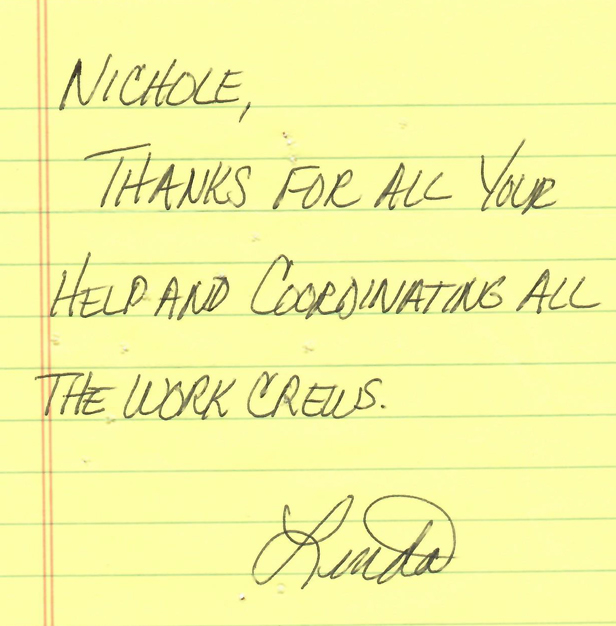 NICHOLE,
THANKS FOR ALL YOUR
HELP AND COORDINATING ALL
THE WORK CREWS.
Linda